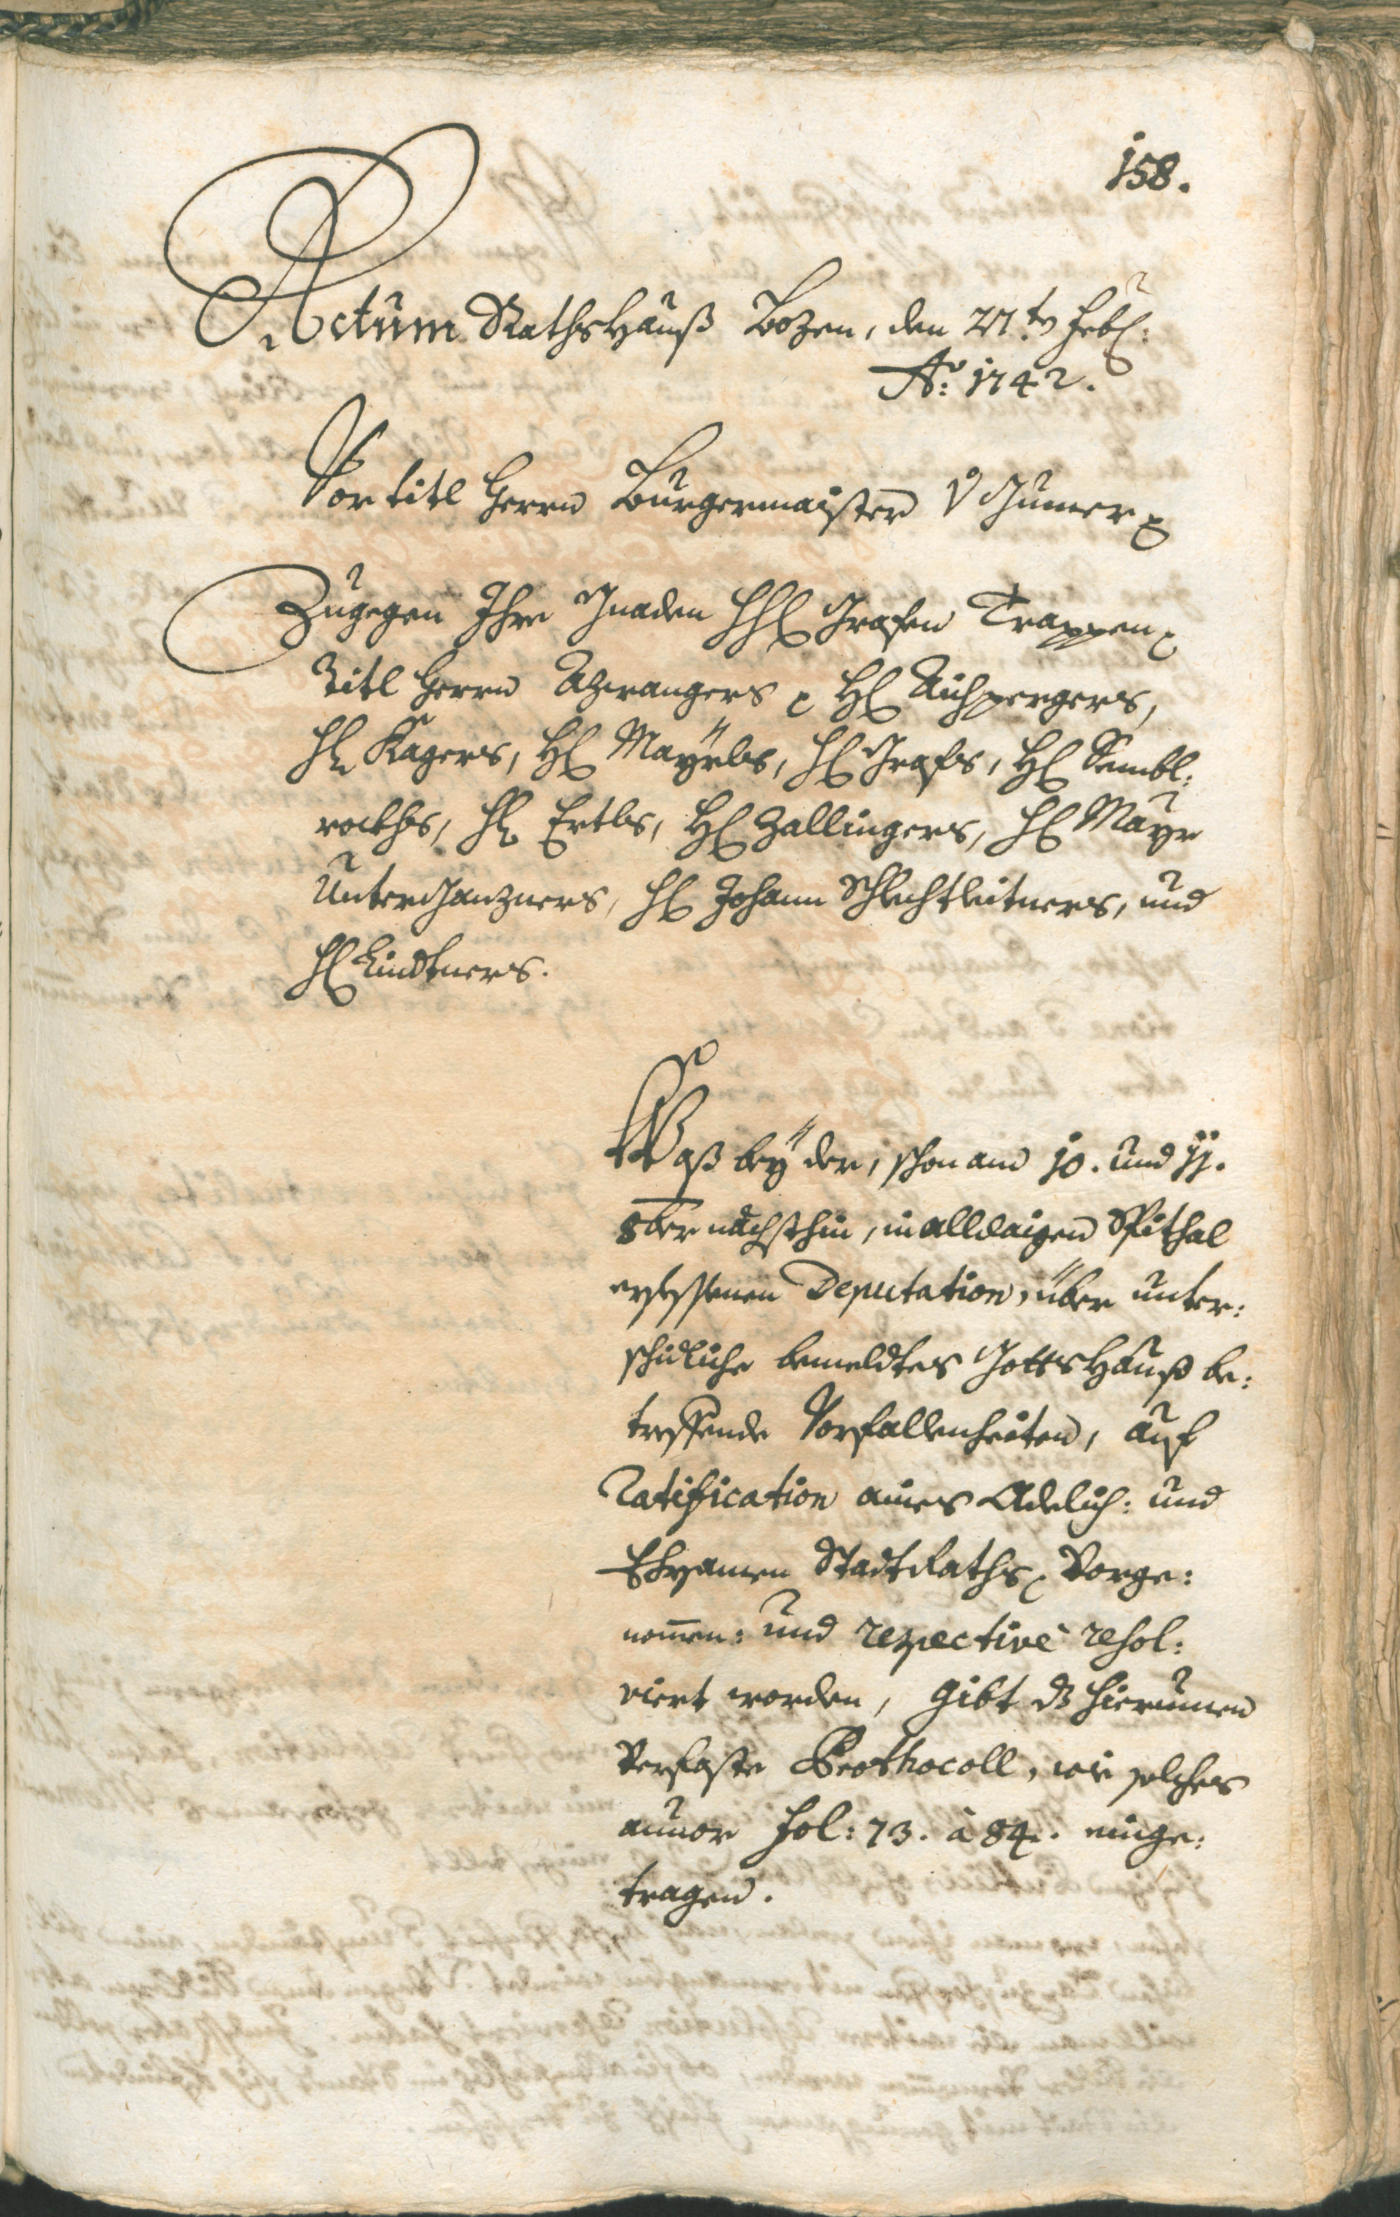 158.
Actum Rathshauß Bozen, den 27.ten Febr:
Aõ: 1742.
Vor titl Herrn Burgermaister v Gumer
Zugegen Ihro Gnaden HH Grafen Trappen
Titl Herrn Azwangers HH Aichpergers,
Hr Kagers, H Mayrls, H Grafs, H Sembl:
rockhs, H Ertls, H Zallingers, H Mayr
Unterganzners, H Johann Schlechtleitners, und
H Lindtners.
Waß bey der, schon am 10. und 11.
8ber nächsthin, in alldaigen Spithal
ersessenen Deputation, über unter:
schidliche bemeldtes Gottshauß be:
treffende Vorfallenheiten, auf
Ratification aines Adelich: und
Ehrsamen StadtRaths Vorge:
nomen: und respective resol:
viert worden, gibt dz hierumen
Verfaste Prothocoll, wie solches
anuor fol: 73. à 84. einge:
tragen.